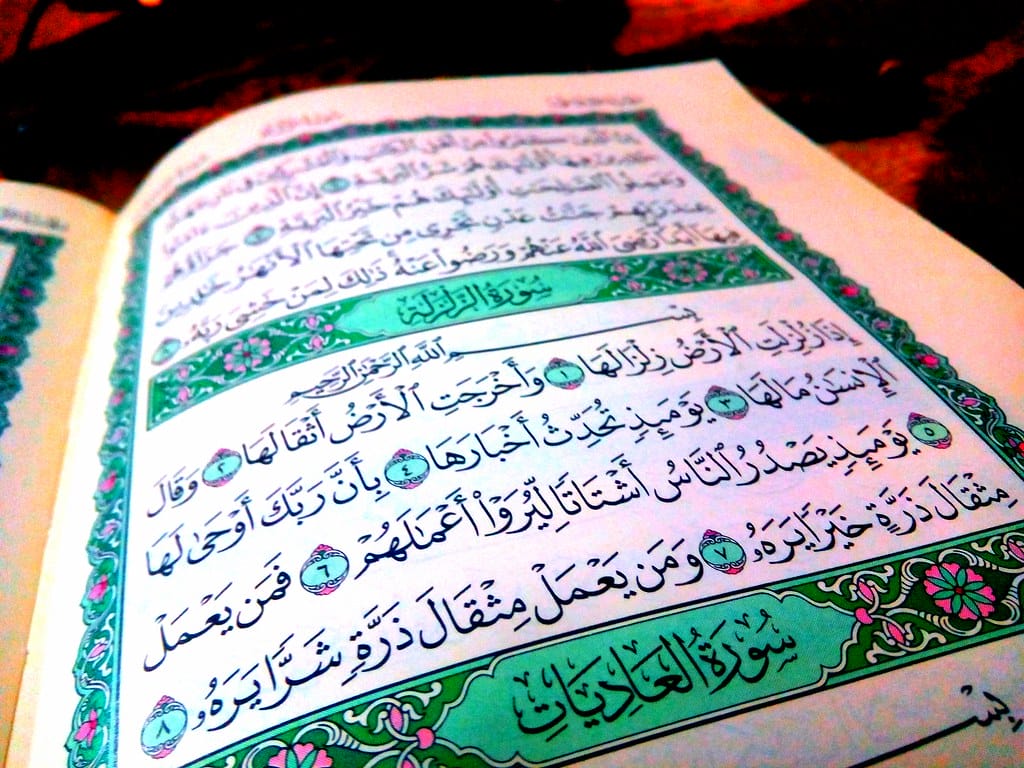 جَزَآؤُهُمْ
عِندَ رَبِّهِمْ جَنَّٰتُ عَدْنٍ تَجْرِى مِن تَحْتِهَا ٱلْأَنْهَٰرُ خَٰلِدِينَ
فِيهَآ أَبَدًا رَّضِىَ ٱللَّهُ عَنْهُمْ وَرَضُوا۟ عَنْهُ ذَٰلِكَ لِمَنْ خَشِىَ رَبَّهُۥ ٨
سُورَةُ الزَّلْزَلَةِ
بِسْمِ ٱللَّهِ ٱلرَّحْمَٰنِ ٱلرَّحِيمِ
إِذَا زُلْزِلَتِ ٱلْأَرْضُ زِلْزَالَهَا ١ وَأَخْرَجَتِ ٱلْأَرْضُ أَثْقَالَهَا ٢ وَقَالَ
ٱلْإِنسَٰنُ مَا لَهَا ٣ يَوْمَئِذٍ تُحَدِّثُ أَخْبَارَهَا ٤ بِأَنَّ رَبَّكَ أَوْحَىٰ لَهَا
٥ يَوْمَئِذٍ يَصْدُرُ ٱلنَّاسُ أَشْتَاتًا لِّيُرَوْا۟ أَعْمَٰلَهُمْ ٦ فَمَن يَعْمَلْ
مِثْقَالَ ذَرَّةٍ خَيْرًا يَرَهُۥ ٧ وَمَن يَعْمَلْ مِثْقَالَ ذَرَّةٍ شَرًّا يَرَهُۥ ٨
سُورَةُ العَادِيَاتِ
بِسْ